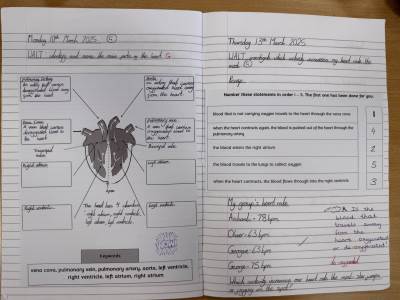 Monday 10th March 2025
WALT identify and name the main parts of the heart
Pulmonary artery
An artery that carries deoxygenated blood away from the heart.
Aorta
An artery that carries oxygenated blood away from the heart.
Vena Cava
A vein that carries deoxygenated blood to the heart.
Pulmonary vein
A vein that carries oxygenated blood to the heart.
Right atrium
Left atrium
Right ventricle
Left ventricle
The heart has 4 chambers
right atrium, right ventricle,
left atrium, left ventricle.
Keywords
vena cava, pulmonary vein, pulmonary artery, aorta, left ventricle,
right ventricle, left atrium, right atrium
Thursday 13th March 2025
WALT investigate which activity increases my heart rate the
most
Number these statements in order 1 – 5. The first one has been done for you.
blood that is not carrying oxygen travels to the heart through the vena cava
1
when the heart contracts again, the blood is pushed out of the heart through the
pulmonary artery
4
the blood enters the right atrium
2
the blood travels to the lungs to collect oxygen
5
when the heart contracts, the blood flows through into the right ventricle
3
My group's heart rate
78 bpm
63 bpm
George - 75 bpm
Is the
blood that
travels away
from the
heart oxygenated
or deoxygenated?
Which activity increases our heart rate the most